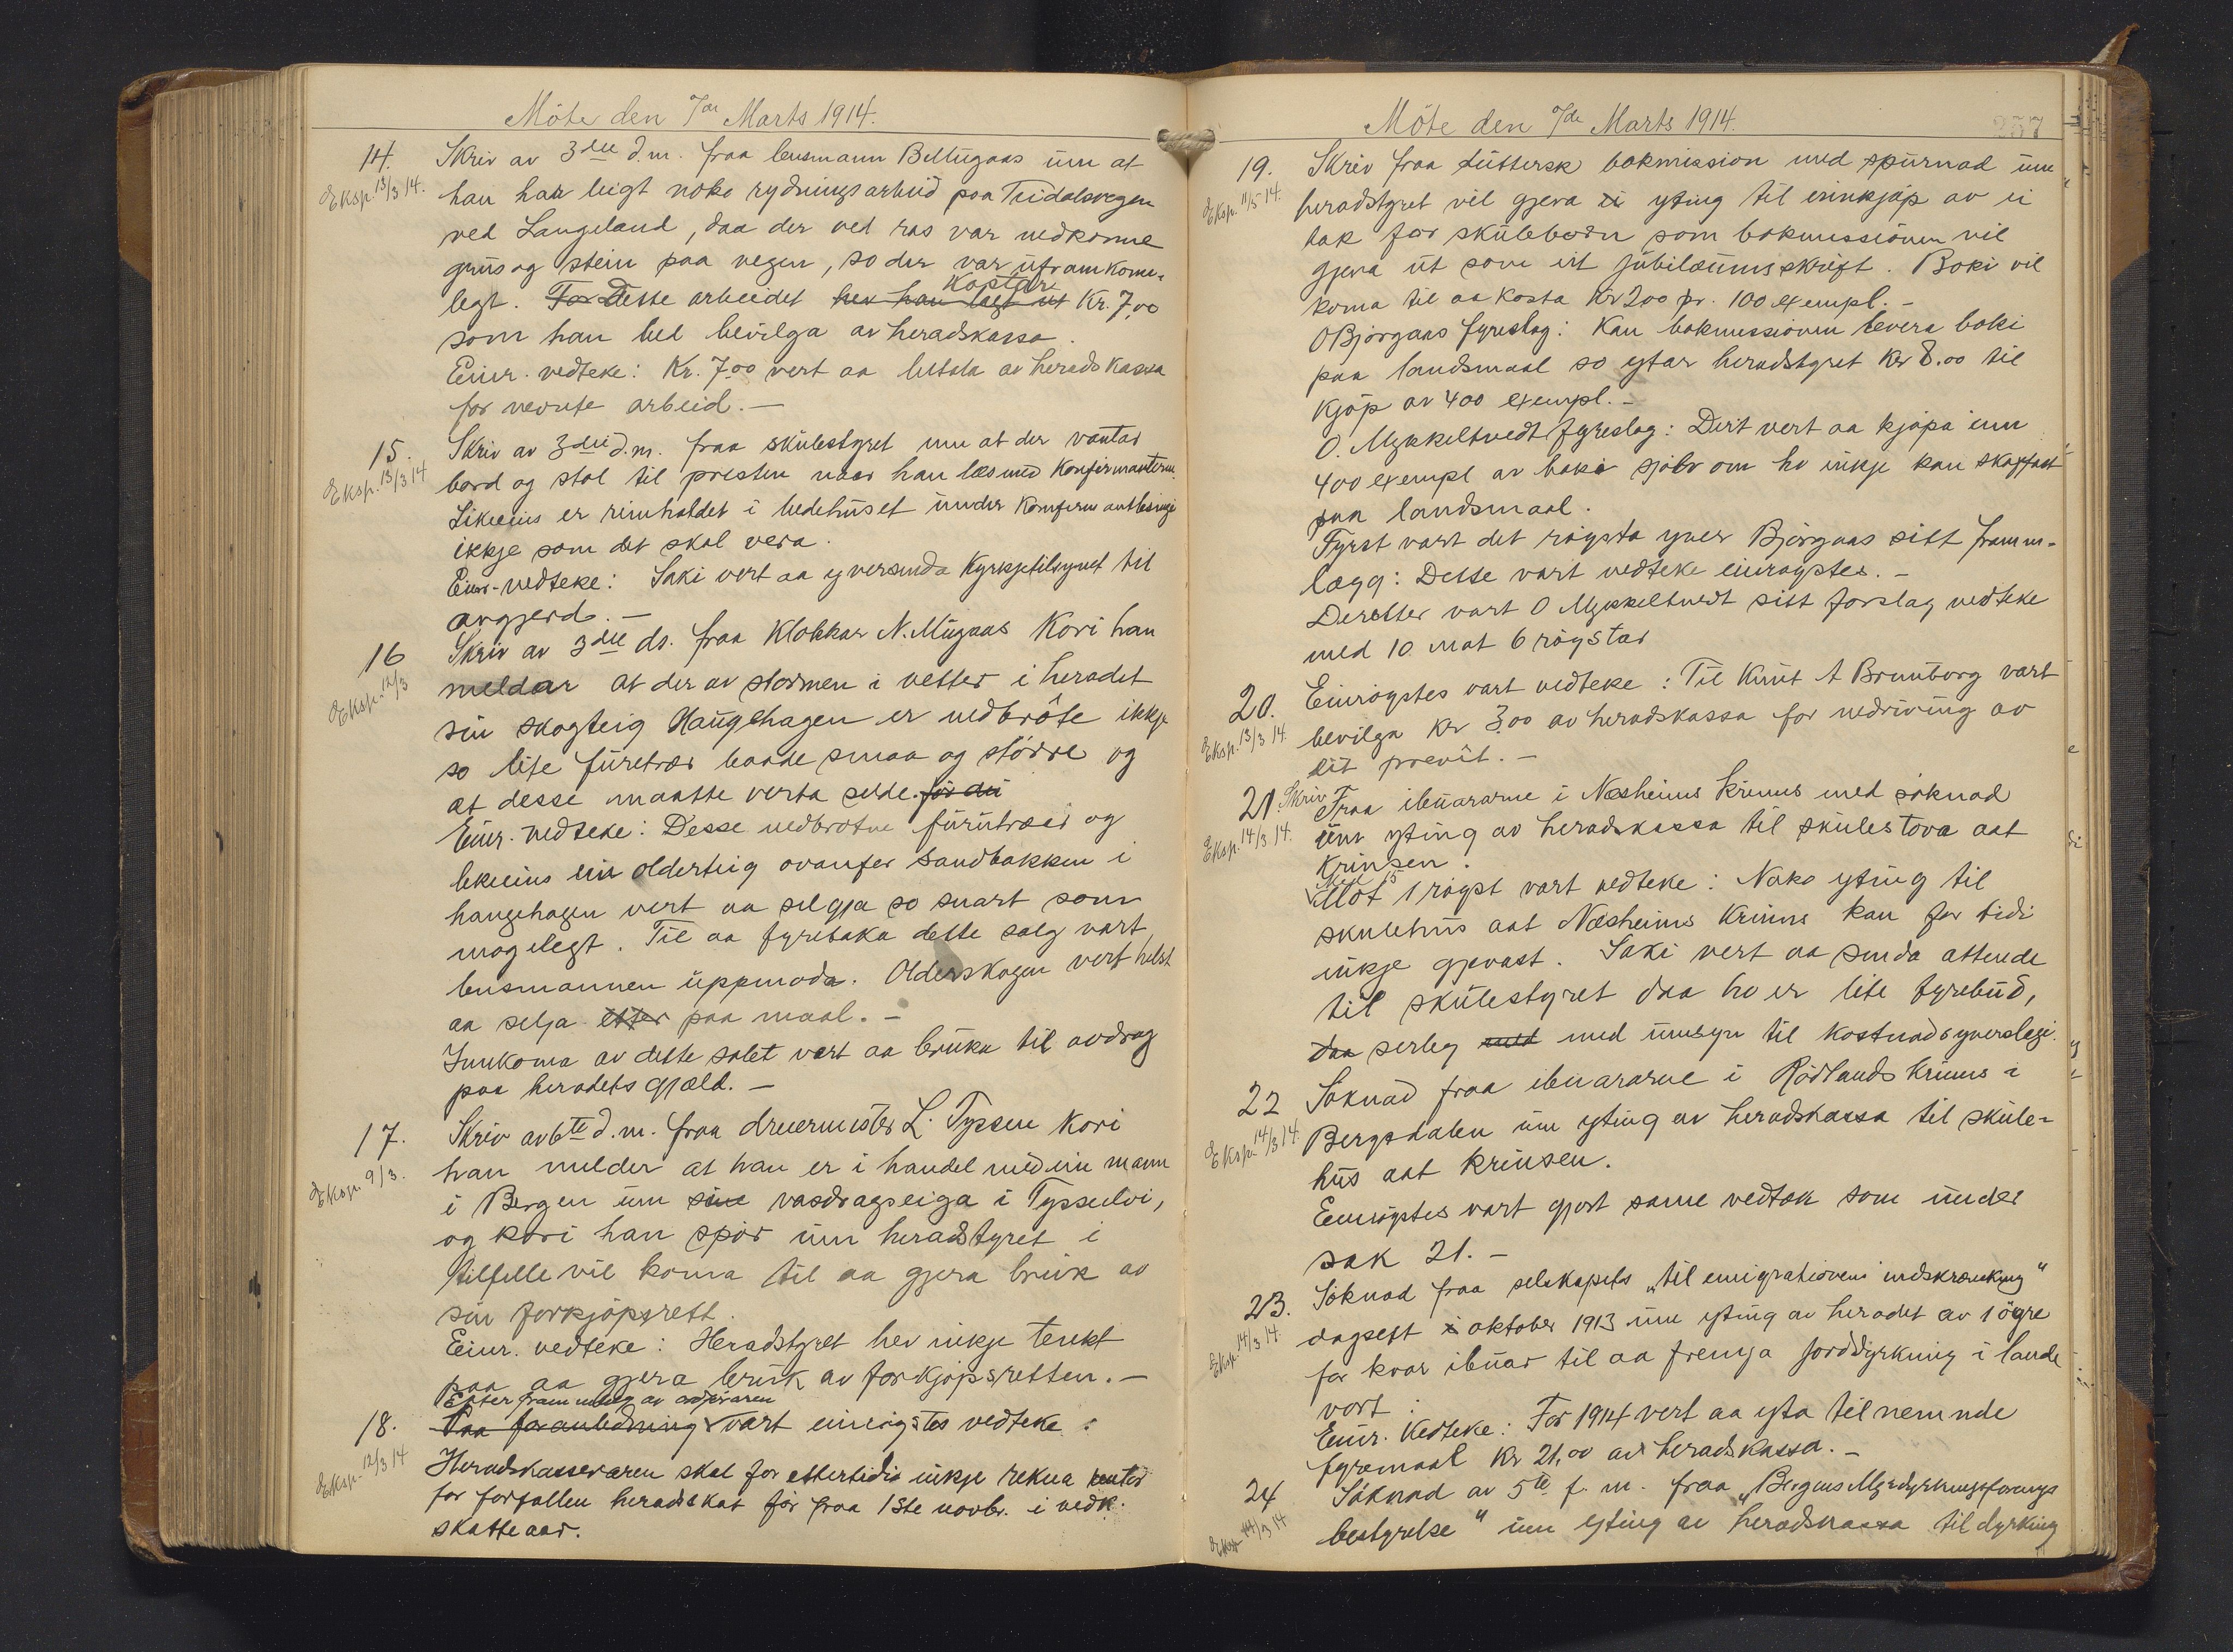 Möte den 7de Marts 1914.
14. Skriv av 3die d.m. fraa lensmann Beltugaas um at
Eksp. 13/3 14. han har leigt noko rydningsarbeid paa Teidalsvegen
ved Langeland, daa der ved ras var nedkome
grus og stein paa vegen, so der var uframkome-
legt. For Dette arbeidet hev han lagt ut kostar Kr. 7,00
som han bed bevilga av heradskassa.
Einr. vedteke: Kr. 7,00 vert aa betala av heradskassa
for nevnte arbeid. —
15. Skriv av 3die d.m. fraa skulestyret um at der vantar
Eksp. 13/3 14 bord og stol til presten naar han les med konfirmantern.
Likeeins er reinhaldet i bedehuset under konfirmantlesingi
ikkje som det skal vera.
Einr. vedteke: Saki vert aa yversenda Kyrkjetilsynet til
avgjerd. —
16 Skriv av 3die ds. fraa Klokkar N. Mugaas kori han
Eksp. 12/3 meldar at der av stormen i vetter i heradet
sin skogteig Haugehagen er nedbröte ikkje
so lite furetrær baade smaa og större og
at desse maatte verta selde. för dei
Einr. vedteke: Desse nedbrotne furutræer og
likeeins ein olderteig ovanfor Sandbakken i
haugehagen vert aa selgja so snart som
mogelegt. Til aa fyretaka dette salg vart
lensmannen uppmoda. Olderskogen vert helst
aa selja etter paa maal. —
Innkoma av dette salet vert aa bruka til avdrag
paa heradets gjæld. —
17. Skriv av 6te d.m. fraa dreiermeister L. Tyssen kori
Eksp. 9/3. han melder at han er i handel med ein mann
i Bergen um sine vasdragseiga i Tysselvi,
og kori han spör um heradstyret i
tilfelle vil koma til aa gjera bruk av
sin forkjöpsrett.
Einr. vedteke: Heradstyret hev inkje tenkt
paa aa gjera bruk av forkjöpsretten. —
Etter framlegg av ordföraren
18. Paa foranledning vart einrögstes vedteke:
Eksp. 12/3 14 Heradskasseraren skal for ettertidi inkje rekna renter
for forfallen heradskat för fraa 1ste novbr. i vedk.
skatteaar.
Möte den 7de Marts 1914. 257
19. Skriv fraa Luttersk bokmission med spurnad um
Eksp. 11/5 14. heradstyret vil gjeva ei yting til innkjöp av ei
bok for skuleborn som bokmissionen vil
gjeva ut som eit jubilæumsskrift. Boki vil
koma til aa kosta kr 200 pr. 100 exempl. —
O Bjørgaas fyreslag: Kan bokmissionen levera boki
paa landsmaal so ytar heradstyret kr 8.00 til
kjöp av 400 exempl. —
O. Mykkeltvedt fyreslag: Dert vert aa kjöpa inn
400 exempl av boki sjölv om ho inkje kan skaffast
paa landsmaal.
Fyrst vart det rögsta yver Bjørgaas sitt framm-
lægg: Dette vart vedteke einrögstes. —
Deretter vart O Mykkeltvedt sitt forslag vedteke
med 10 mot 6 rögstar
20. Einrögstes vart vedteke: Til Knut A Brunborg vart
Eksp. 13/3 14. bevilga kr 3,00 av heradskassa for nedriving av
eit prevèt. —
21. Skriv Fraa ibuararne i Næsheims Krins med söknad
Eksp. 14/3 14. um yting av heradskassa til skulestova aat
Krinsen.
Med 15 Mot 1 rögst vart vedteke: Noko yting til
skulehus aat Næsheims Krins kan for tidi
inkje gjevast. Saki vert aa senda attende
til skulestyret daa ho er lite fyrebud,
daa serleg med med umsyn til kostnadsyverslagi.
22 Söknad fraa ibuararne i Rödlands Krins i
Eksp. 14/3 14. Bergsdalen um yting av heradskassa til skule-
hus aat krinsen.
Einrögstes vart gjort same vedtak som under
sak 21. —
23. Söknad fraa selskapets „til emigrationens indskrænkning"
Eksp. 14/3 14. dagsett i oktober 1913 um yting av heradet av 1 öyre
for kvar ibuar til aa fremja jorddyrkning i lande
vort.
Einr. Vedteke: For 1914 vert aa yta til nemnde
fyremaal kr 21,00 av heradskassa. —
24 Söknad av 5te f.m. fraa „Bergens Myrdyrkningsforenings
Eksp. 14/3 14 bestyrelse" um yting av heradskassa til dyrking